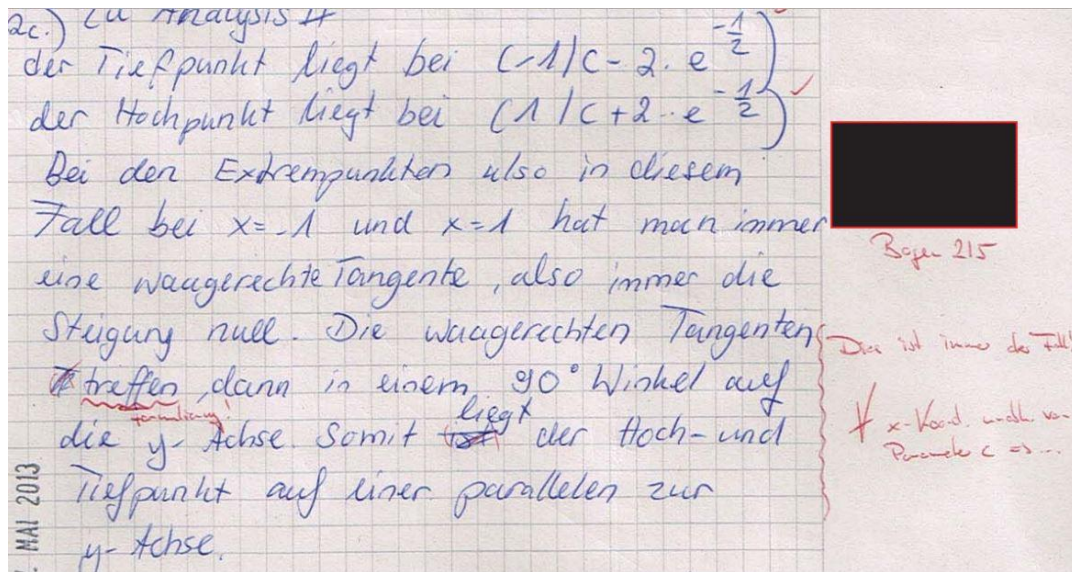 2c.) Zu Analysis II
der Tiefpunkt liegt bei (-1/c-2·e^{-\frac{1}{2}})
der Hochpunkt liegt bei (1/c+2·e^{-\frac{1}{2}})
Bei den Extrempunkten also in diesem
Fall bei x=-1 und x=1 hat man immer
eine waagerechte Tangente, also immer die
Steigung null. Die waagerechten Tangenten
treffen dann in einem 90° Winkel auf
Formulierung!
die y-Achse. Somit liegt der Hoch- und
Tiefpunkt auf einer parallelen zur
y-Achse.
Bogen 215
Dies ist immer der Fall!
x-Koord. unabh. von
Parameter c => ...
MAI 2013